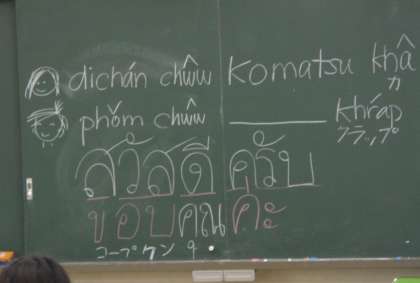 dichán chɯ̂ɯ Komatsu khâ
カ
phǒm chɯ̂ɯ ______ khráp
クラップ
สวัสดี ครับ
ขอบคุณ คะ
コープ クン